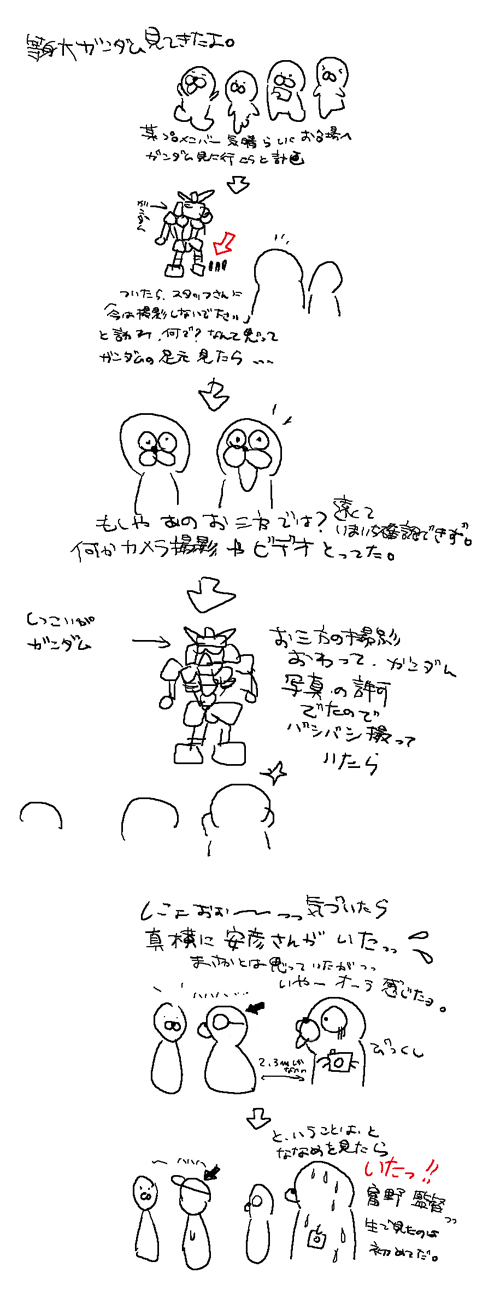 等身大ガンダム見てきたよ。
某プロメンバー気晴らしにお台場へ
ガンダム見に行こうと計画
がんだむ
ついたら、スタッフさんに
「今は撮影しないで下さい」
と言われ、何で?なんて思って
ガンダムの足元見たら …
もしやあのお三方では?
遠くて
いまいち確認できず。
何かカメラ撮影やビデオとってた。
しつこいが
ガンダム
お三方の撮影
おわって、ガンダム
写真の許可
でたので
バシバシ撮って
いたら
しょえおぉ〜〜っっ 気づいたら
真横に安彦さんがいたっっ
まさかとは思っていたがっっ
いやーオーラ感じたョ。
びっくし
2、3mしか
ない
と、いうことは、と
ななめを見たら
いたっ!!
富野監督っっ
生で見たのは
初めてだ。